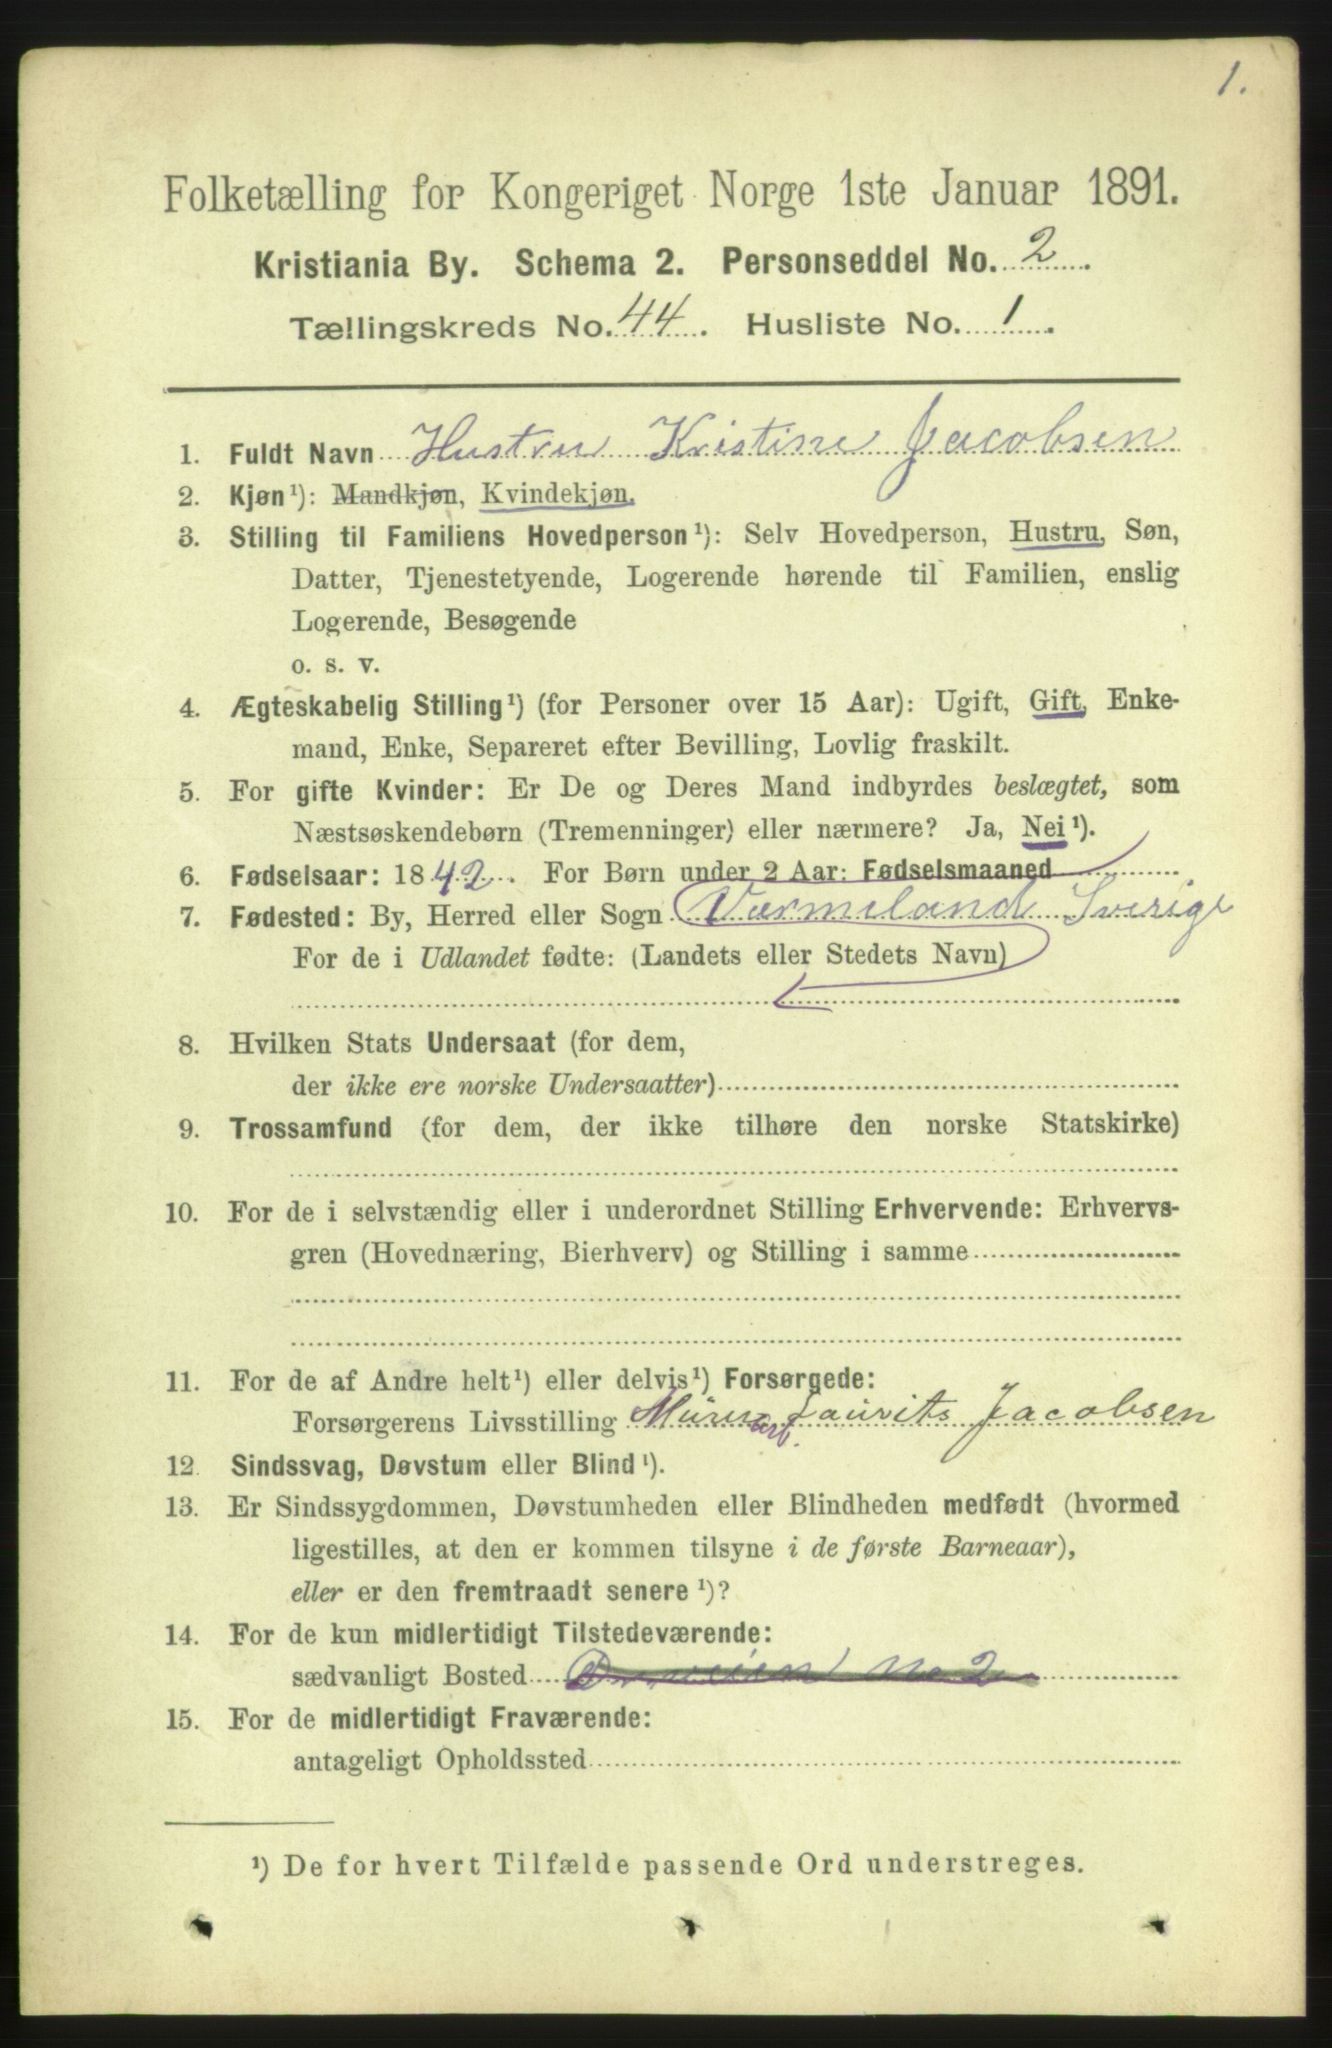 1.
Folketælling for Kongeriget Norge 1ste Januar 1891.
Kristiania By. Schema 2. Personseddel No. 2.
Tællingskreds No. 44. Husliste No. 1.
1. Fuldt Navn Hustru Kristine Jacobsen
2. Kjøn¹): Mandkjøn, Kvindekjøn.
3. Stilling til Familiens Hovedperson¹): Selv Hovedperson, Hustru, Søn,
Datter, Tjenestetyende, Logerende hørende til Familien, enslig
Logerende, Besøgende
o. s. v.
4. Ægteskabelig Stilling¹) (for Personer over 15 Aar): Ugift, Gift, Enke-
mand, Enke, Separeret efter Bevilling, Lovlig fraskilt.
5. For gifte Kvinder: Er De og Deres Mand indbyrdes beslægtet, som
Næstsøskendebørn (Tremenninger) eller nærmere? Ja, Nei¹).
6. Fødselsaar: 1842. For Børn under 2 Aar: Fødselsmaaned
7. Fødested: By, Herred eller Sogn Værmeland Sverige
For de i Udlandet fødte: (Landets eller Stedets Navn)
8. Hvilken Stats Undersaat (for dem,
der ikke ere norske Undersaatter)
9. Trossamfund (for dem, der ikke tilhøre den norske Statskirke)
10. For de i selvstændig eller i underordnet Stilling Erhvervende: Erhvervs-
gren (Hovednæring, Bierhverv) og Stilling i samme
11. For de af Andre helt¹) eller delvis¹) Forsørgede:
Forsørgerens Livsstilling arb. Laurits Jacobsen
12. Sindssvag, Døvstum eller Blind¹).
13. Er Sindssygdommen, Døvstumheden eller Blindheden medfødt (hvormed
ligestilles, at den er kommen tilsyne i de første Barneaar),
eller er den fremtraadt senere¹)?
14. For de kun midlertidigt Tilstedeværende:
sædvanligt Bosted No 2
15. For de midlertidigt Fraværende:
antageligt Opholdssted
¹) De for hvert Tilfælde passende Ord understreges.